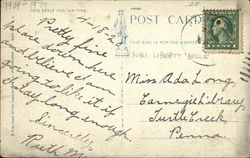 THIS SPACE FOR WRITING
POST CARD
THIS SIDE IS FOR THE ADDRESS
4/18-21
Pretty fine
place down here
and believe I am
going to like it if
I stay long enough
Sincerely
Ruth M.
Miss Ada Long,
Carnegie Library,
Turtle Creek,
Penna.